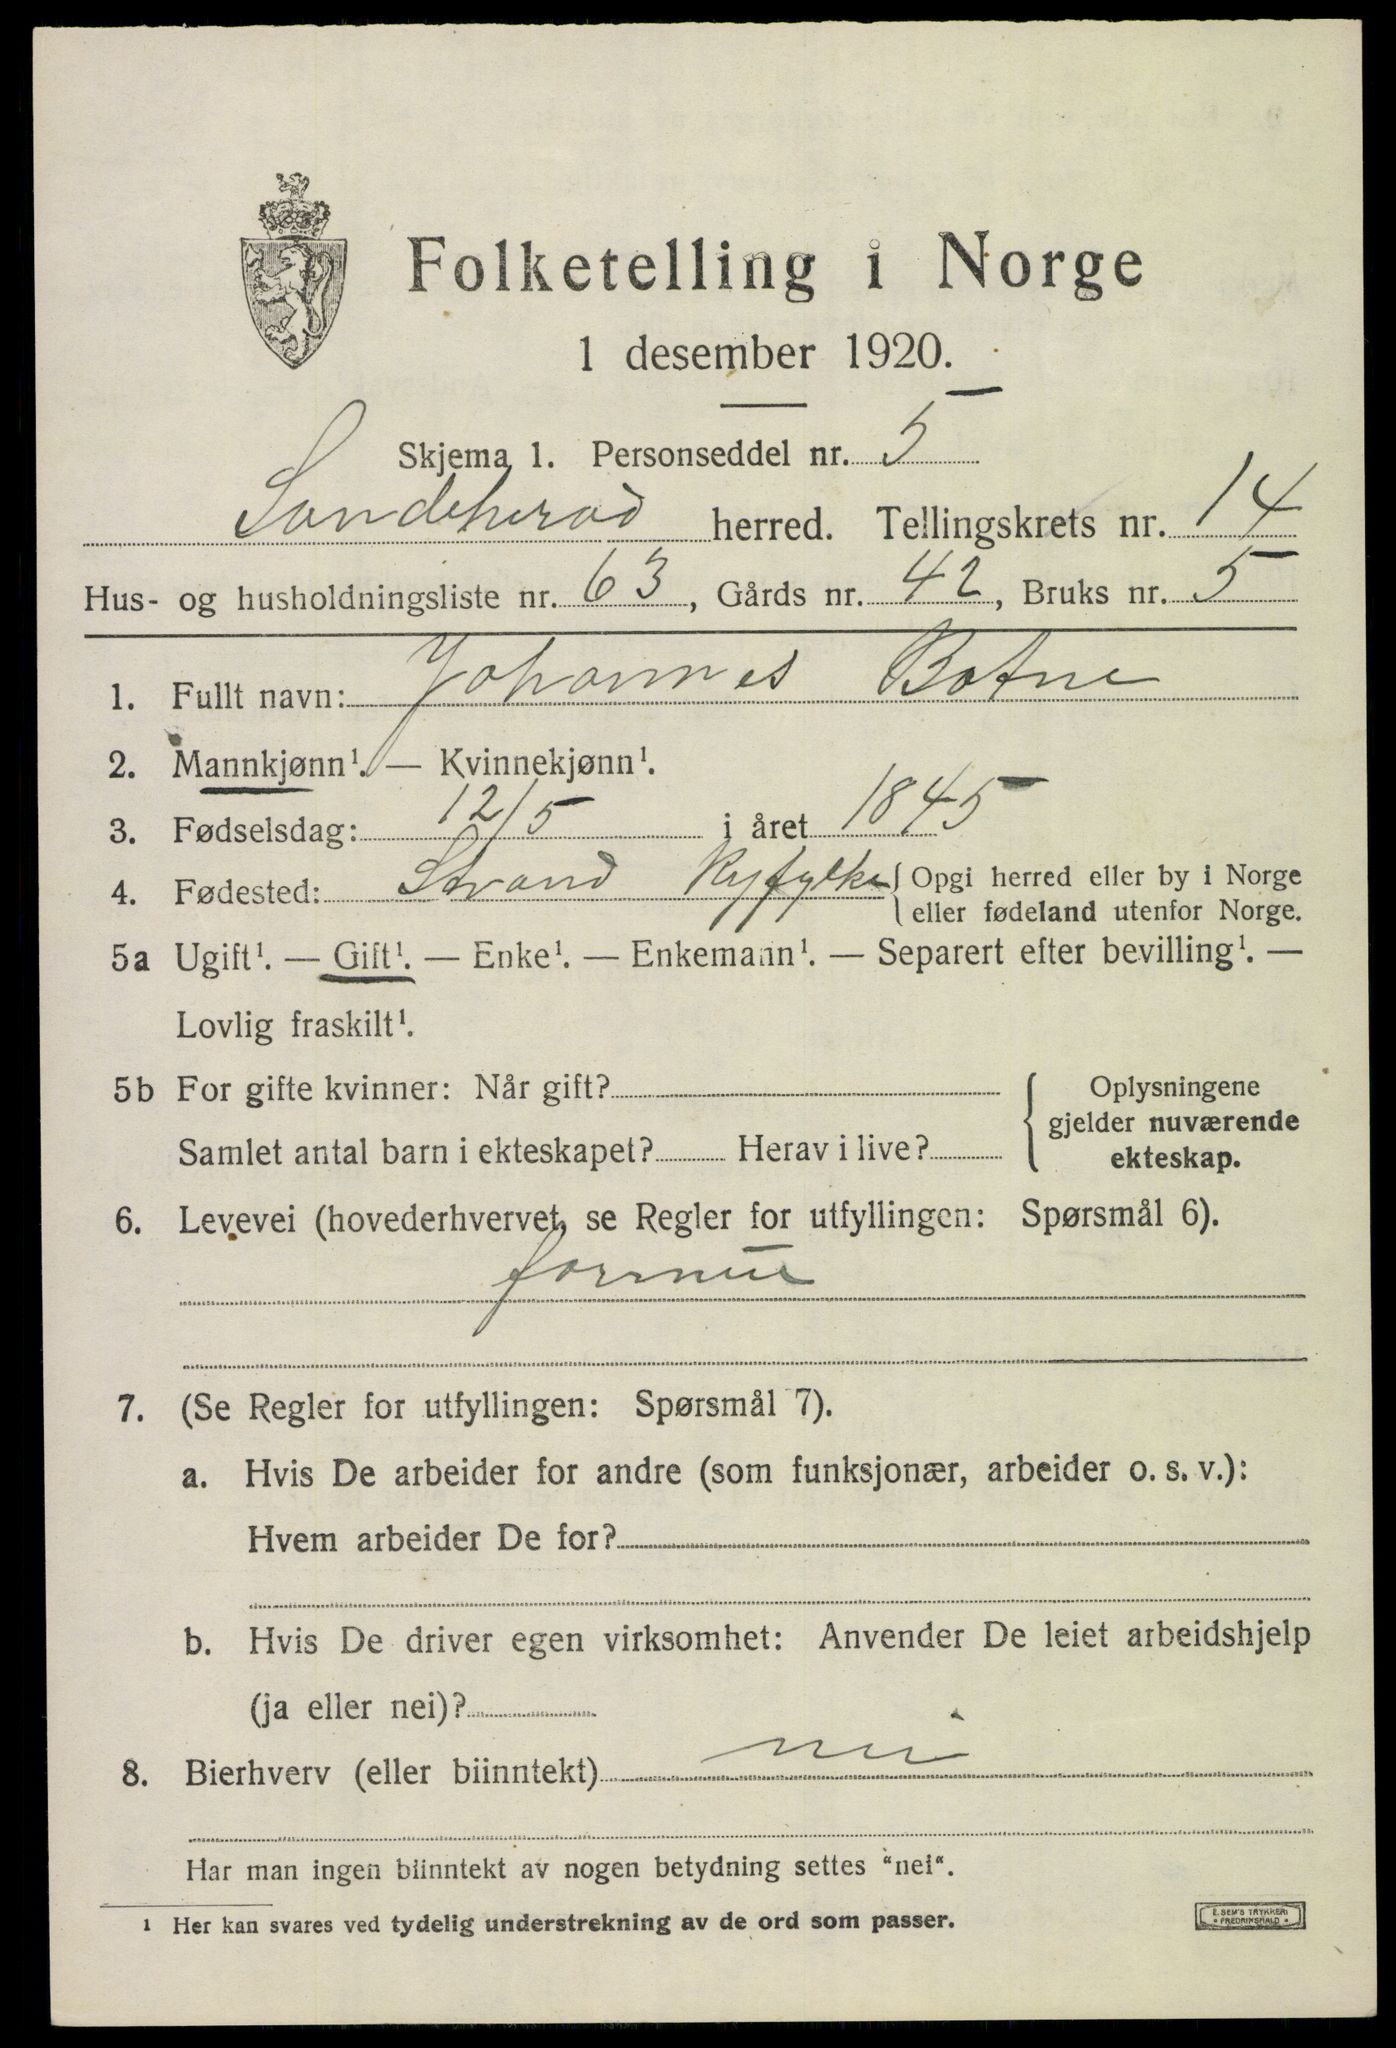 Folketelling i Norge
1 desember 1920.
Skjema 1. Personseddel nr. 5
Sandeherad herred. Tellingskrets nr. 14
Hus- og husholdningsliste nr. 63, Gårds nr. 42, Bruks nr. 5
1. Fullt navn: Johannes Botne
2. Mannkjønn¹. — Kvinnekjønn¹.
3. Fødselsdag: 12/5 i året 1845
4. Fødested: Strand Ryfylke { Opgi herred eller by i Norge
eller fødeland utenfor Norge.
5a Ugift¹. — Gift¹. — Enke¹. — Enkemann¹. — Separert efter bevilling¹. —
Lovlig fraskilt¹.
5b For gifte kvinner: Når gift?
Samlet antal barn i ekteskapet? Herav i live?
{ Oplysningene
gjelder nuværende
ekteskap.
6. Levevei (hovederhvervet, se Regler for utfyllingen: Spørsmål 6).
formue
7. (Se Regler for utfyllingen: Spørsmål 7).
a. Hvis De arbeider for andre (som funksjonær, arbeider o. s. v.):
Hvem arbeider De for?
b. Hvis De driver egen virksomhet: Anvender De leiet arbeidshjelp
(ja eller nei)?
8. Bierhverv (eller biinntekt) nei
Har man ingen biinntekt av nogen betydning settes "nei".
¹ Her kan svares ved tydelig understrekning av de ord som passer.
E. SEM'S TRYKKERI
• FREDRIKSHALD •